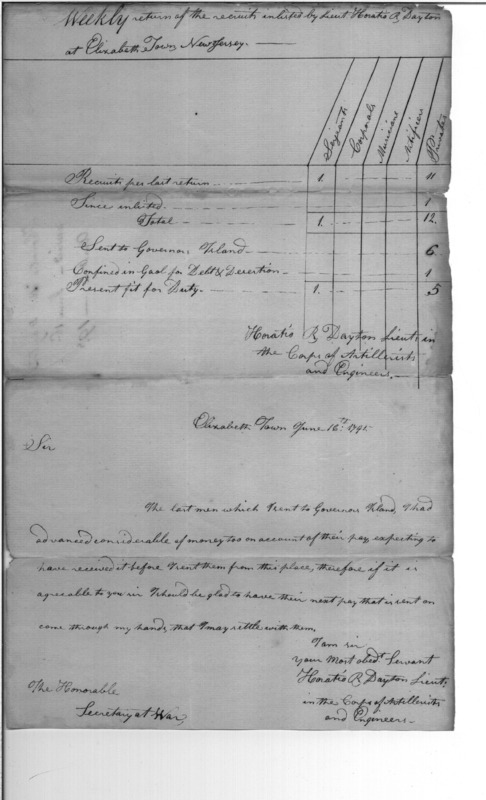 Weekly return of the recruits inlisted by Lieut Horatio R, Dayton
at Elizabeth Town New Jersey.
Sergeants Corporals Musicians Artificers Privates
Recruits per last return 1. 11
Since inlisted 1
Total 1. 12.
Sent to Governors Island 6.
Confined in Gaol for Debt & Desertion 1
Present fit for Duty 1. 5
Horatio R, Dayton Lieut; in
the Corps of Artillerists
and Engineers.
Elizabeth Town June 16th
Sir
The last men which I sent to Governors Island, I had
advanced considerable of money too on account of their pay expecting to
have received it before I sent them from this place, therefore if it is
agreeable to you sir I should be glad to have their next pay that is sent on
come through my hands, that I may settle with them.
I am sir
your Most obedt Servant
Horatio R, Dayton Lieut;
in the Corps of Artillerists
and Engineers
The Honorable
Secretary at War,